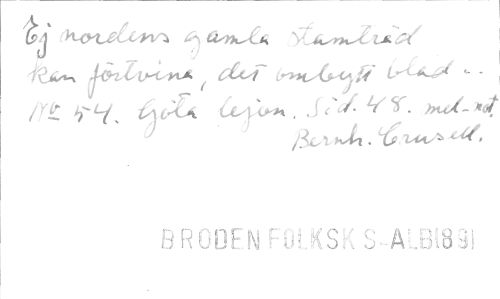 Ej nordens gamla stamträd
kan förtvina, det ombytt blad ..
No 54. Göta lejon. Sid. 48. mel-not.
Bernh. Crusell.
BRODEN FOLKSK S-ALB 1891